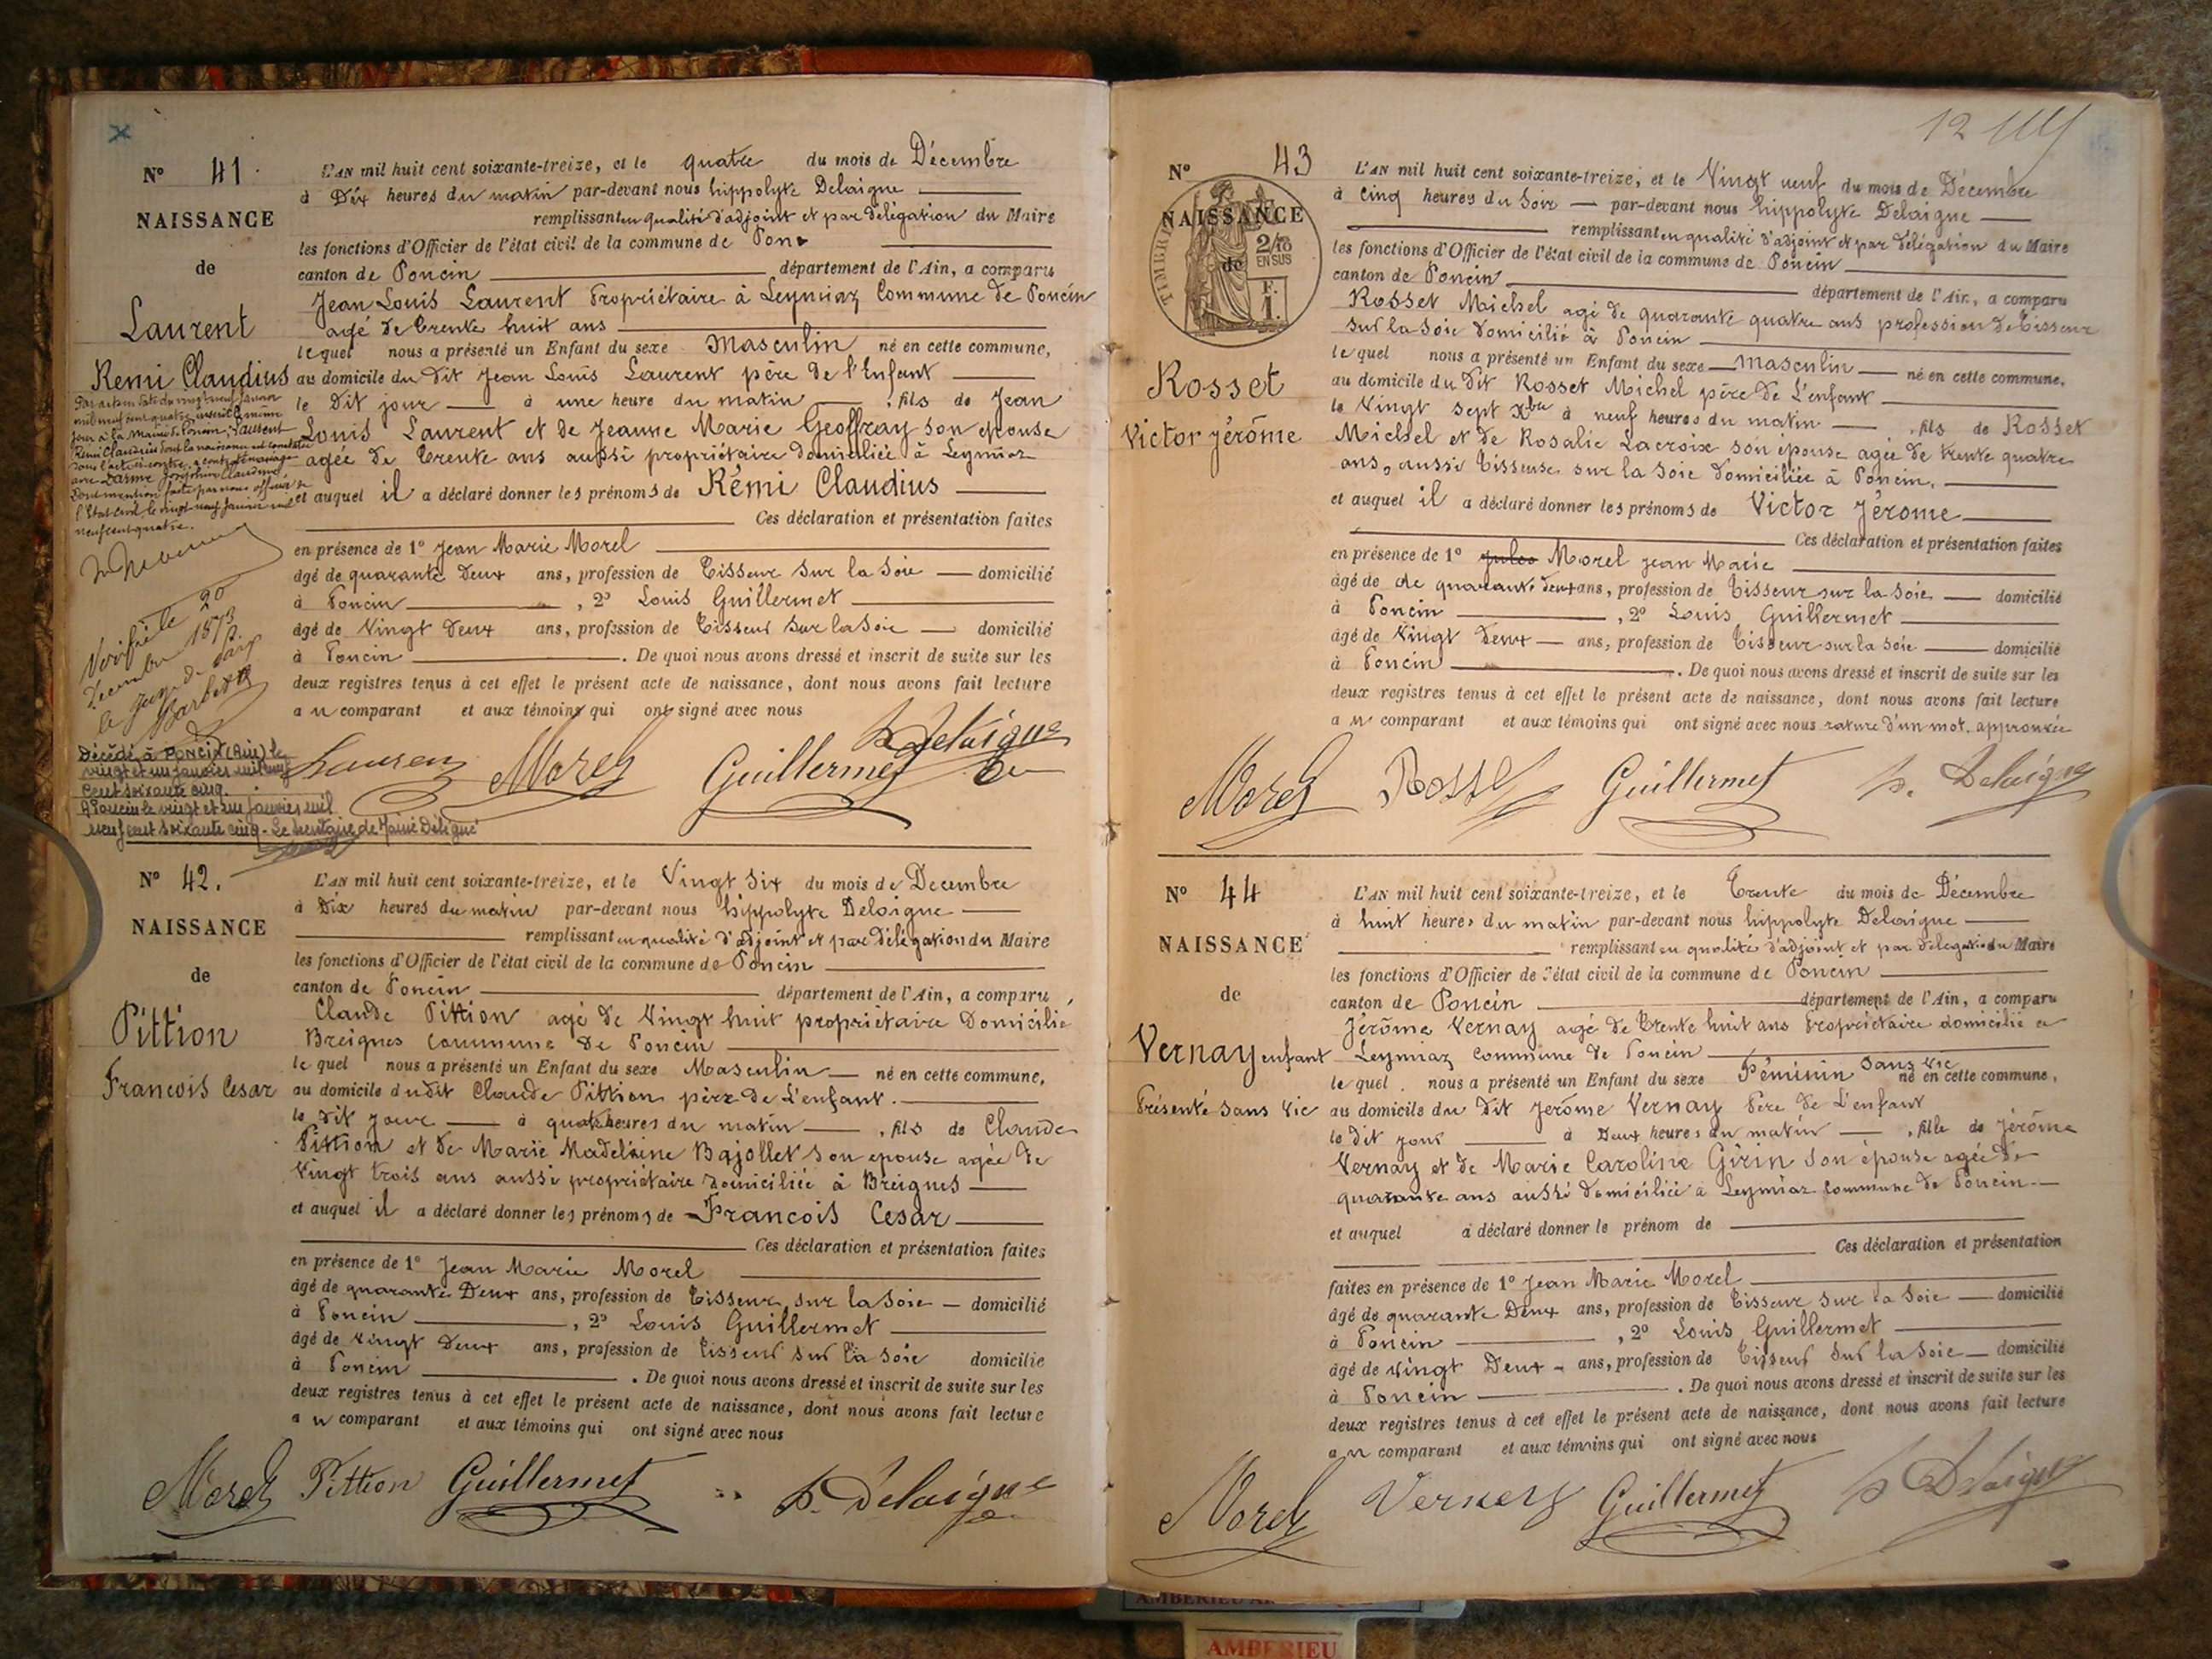 N° 41.
NAISSANCE
de
Laurent
Remi Claudius
L'AN mil huit cent soixante-treize, et le quatre du mois de Décembre
à Dix heures du matin par-devant nous hippolyte Delaigne
remplissant en qualité d'adjoint et par délégation du Maire
les fonctions d'Officier de l'état civil de la commune de Pon
canton de Poncin département de l'Ain, a comparu
Jean Louis Laurent Propriétaire à Leymiaz Commune de Poncin
agé de Trente huit ans
lequel nous a présenté un Enfant du sexe Masculin né en cette commune,
au domicile du dit Jean Louis Laurent père de l'Enfant
le dit jour à une heure du matin, fils de Jean
Louis Laurent et de Jeanne Marie Geoffray son epouse
agée de Trente ans aussi propriétaire domiciliée à Leymiaz
et auquel il a déclaré donner les prénoms de Rémi Claudius
Ces déclaration et présentation faites
en présence de 1° Jean Marie Morel
âgé de quarante Deux ans, profession de Tisseur sur la Soie domicilié
à Poncin, 2° Louis Guillermet
âgé de Vingt Deux ans, profession de Tisseur sur la Soie domicilié
à Poncin. De quoi nous avons dressé et inscrit de suite sur les
deux registres tenus à cet effet le présent acte de naissance, dont nous avons fait lecture
au comparant et aux témoins qui ont signé avec nous
Laurent Morel Guillermet h Delaigne
Par acte en date du vingt neuf Janvier
mil neuf cent quatre inscrit le même
jour à la Mairie de Poncin, Laurent
Remi Claudius dont la naissance est constatée
dans l'acte ci-contre, a contracté mariage
avec Darme Joséphine Claudine
Dont mention faite par nous officier de
l'Etat civil le vingt neuf Janvier mil
neuf cent quatre.
Vérifié le 20
Décembre 1873
le juge de paix
Décédé à PONCIN (Ain) le
vingt et un janvier mil neuf
cent soixante cinq.
A Poncin le vingt et un janvier mil
neuf cent soixante cinq - Le Secrétaire de Mairie Délégué
N° 42.
NAISSANCE
de
Pittion
Francois Cesar
L'AN mil huit cent soixante-treize, et le Vingt Six du mois de Decembre
à Dix heures du matin par-devant nous hippolyte Delaigne
remplissant en qualité d'adjoint et par délégation du Maire
les fonctions d'Officier de l'état civil de la commune de Poncin
canton de Poncin département de l'Ain, a comparu
Claude Pittion agé de Vingt huit propriétaire Domicilié
Breignes Commune de Poncin
le quel nous a présenté un Enfant du sexe Masculin né en cette commune,
au domicile dudit Claude Pittion père de L'enfant.
le dit jour à quatre heures du matin, fils de Claude
Pittion et de Marie Madeleine Bajollet son epouse agée de
Vingt trois ans aussi propriétaire domiciliée à Breignes
et auquel il a déclaré donner les prénoms de Francois Cesar
Ces déclaration et présentation faites
en présence de 1° Jean Marie Morel
âgé de quarante Deux ans, profession de Tisseur sur la Soie domicilié
à Poncin, 2° Louis Guillermet
âgé de Vingt Deux ans, profession de Tisseur sur la Soie domicilié
à Poncin. De quoi nous avons dressé et inscrit de suite sur les
deux registres tenus à cet effet le présent acte de naissance, dont nous avons fait lecture
au comparant et aux témoins qui ont signé avec nous
Morel Pittion Guillermet h. Delaigne
12
N° 43
NAISSANCE
de
TIMBRE
2/10
EN SUS
F.
1.
Rosset
Victor Jérôme
L'AN mil huit cent soixante-treize, et le Vingt neuf du mois de Décembre
à Cinq heures du Soir par-devant nous hippolyte Delaigne
remplissant en qualité d'adjoint et par délégation du Maire
les fonctions d'Officier de l'état civil de la commune de Poncin
canton de Poncin département de l'Ain, a comparu
Rosset Michel agé de quarante quatre ans profession de Tisseur
sur la Soie domicilié à Poncin
le quel nous a présenté un Enfant du sexe masculin né en cette commune,
au domicile du dit Rosset Michel père de L'enfant
le Vingt sept Xbre à neuf heures du matin, fils de Rosset
Michel et de Rosalie Lacroix son épouse agée de trente quatre
ans, aussi Tisseuse sur la Soie Domiciliée à Poncin.
et auquel il a déclaré donner les prénoms de Victor Jérome
Ces déclaration et présentation faites
en présence de 1° Jules Morel Jean Marie
âgé de de quarante deux ans, profession de Tisseur sur la Soie domicilié
à Poncin, 2° Louis Guillermet
âgé de Vingt Deux ans, profession de Tisseur sur la Soie domicilié
à Poncin. De quoi nous avons dressé et inscrit de suite sur les
deux registres tenus à cet effet le présent acte de naissance, dont nous avons fait lecture
au comparant et aux témoins qui ont signé avec nous rature d'un mot approuvée
Morel Rosset Guillermet h. Delaigne
N° 44
NAISSANCE
de
Vernay enfant
Présenté sans vie
L'AN mil huit cent soixante-treize, et le Trente du mois de Décembre
à huit heures du matin par-devant nous hippolyte Delaigne
remplissant en qualité d'adjoint et par délégation du Maire
les fonctions d'Officier de l'état civil de la commune de Poncin
canton de Poncin département de l'Ain, a comparu
Jérôme Vernay agé de Trente huit ans Propriétaire domicilié a
Leymiaz Commune de Poncin
le quel nous a présenté un Enfant du sexe Féminin sans vie né en cette commune,
au domicile du dit Jérôme Vernay Père de L'enfant
le dit jour à Deux heures du matin, fille de Jérôme
Vernay et de Marie Caroline Girin son épouse agée de
quarante ans aussi domiciliée à Leymiaz Commune de Poncin
et auquel a déclaré donner le prénom de
Ces déclaration et présentation
faites en présence de 1° Jean Marie Morel
âgé de quarante Deux ans, profession de Tisseur sur la Soie domicilié
à Poncin, 2° Louis Guillermet
âgé de Vingt Deux ans, profession de Tisseur sur la Soie domicilié
à Poncin. De quoi nous avons dressé et inscrit de suite sur les
deux registres tenus à cet effet le présent acte de naissance, dont nous avons fait lecture
au comparant et aux témoins qui ont signé avec nous
Morel Vernay Guillermet h Delaigne
AMBERIEU
AMBERIEU